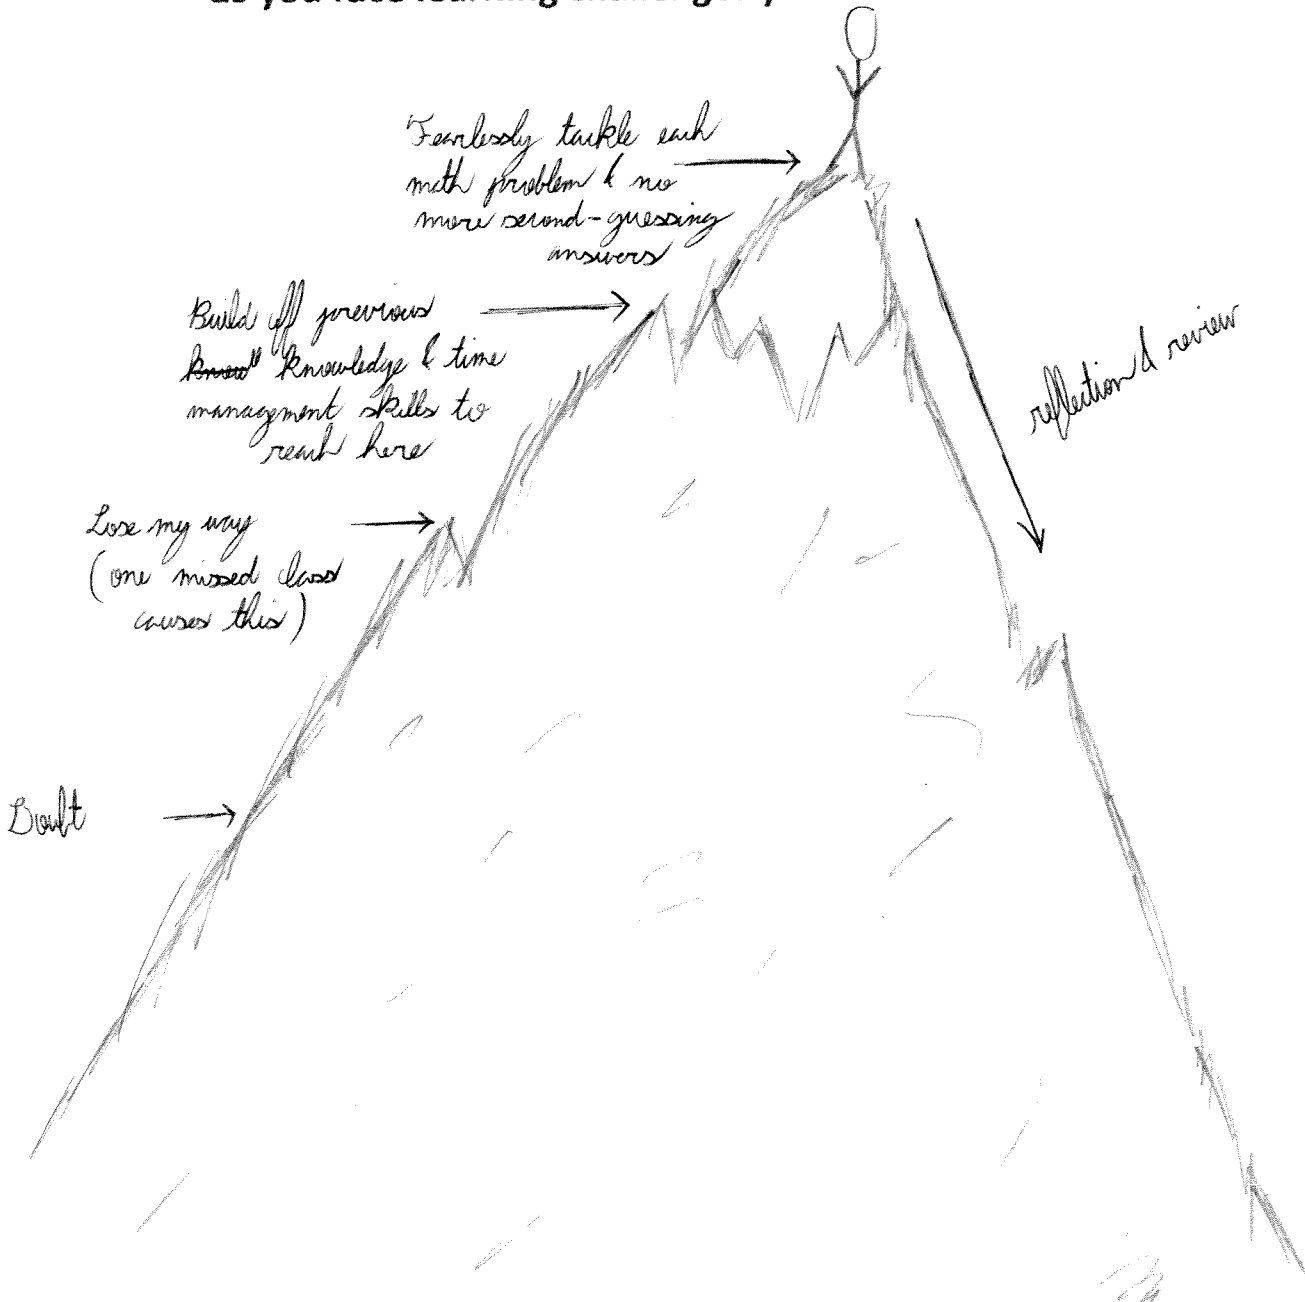 Fearlessly tackle each
math problem & no
more second-guessing
answers
Build off previous
knowledge & time
management skills to
reach here
reflection & review
Lose my way
(one missed class
causes this)
Doubt